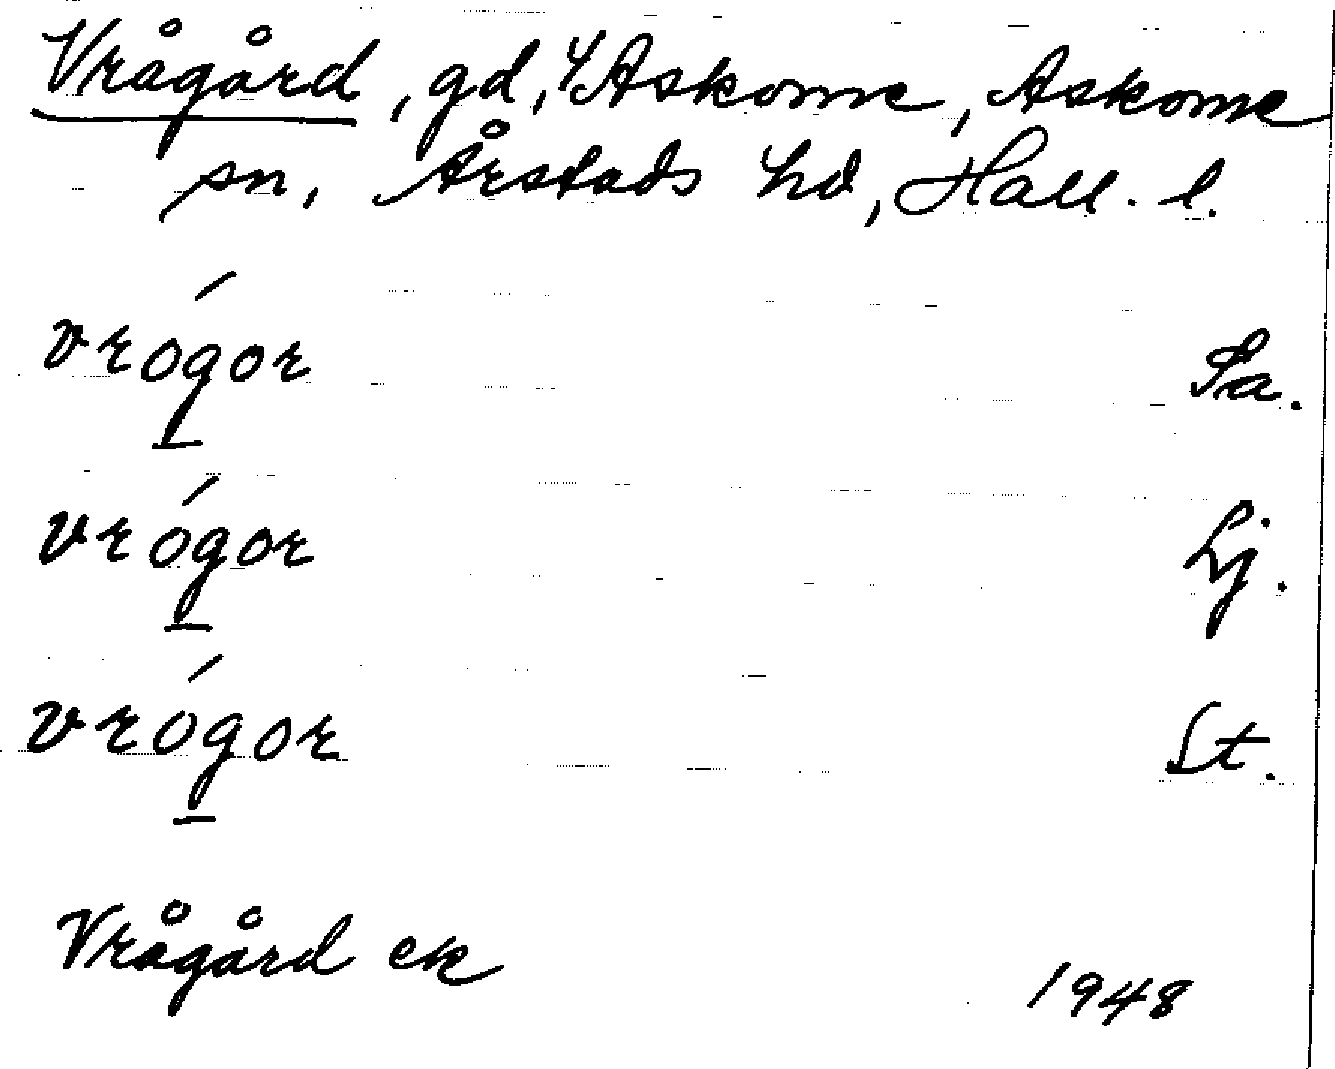 Vrågård, gd, 4 Askome, Askome
sn, Årstads hd, Hall. l.
vrógor Sa.
vrógor Lj.
vrógor St.
Vrågård ek
1948